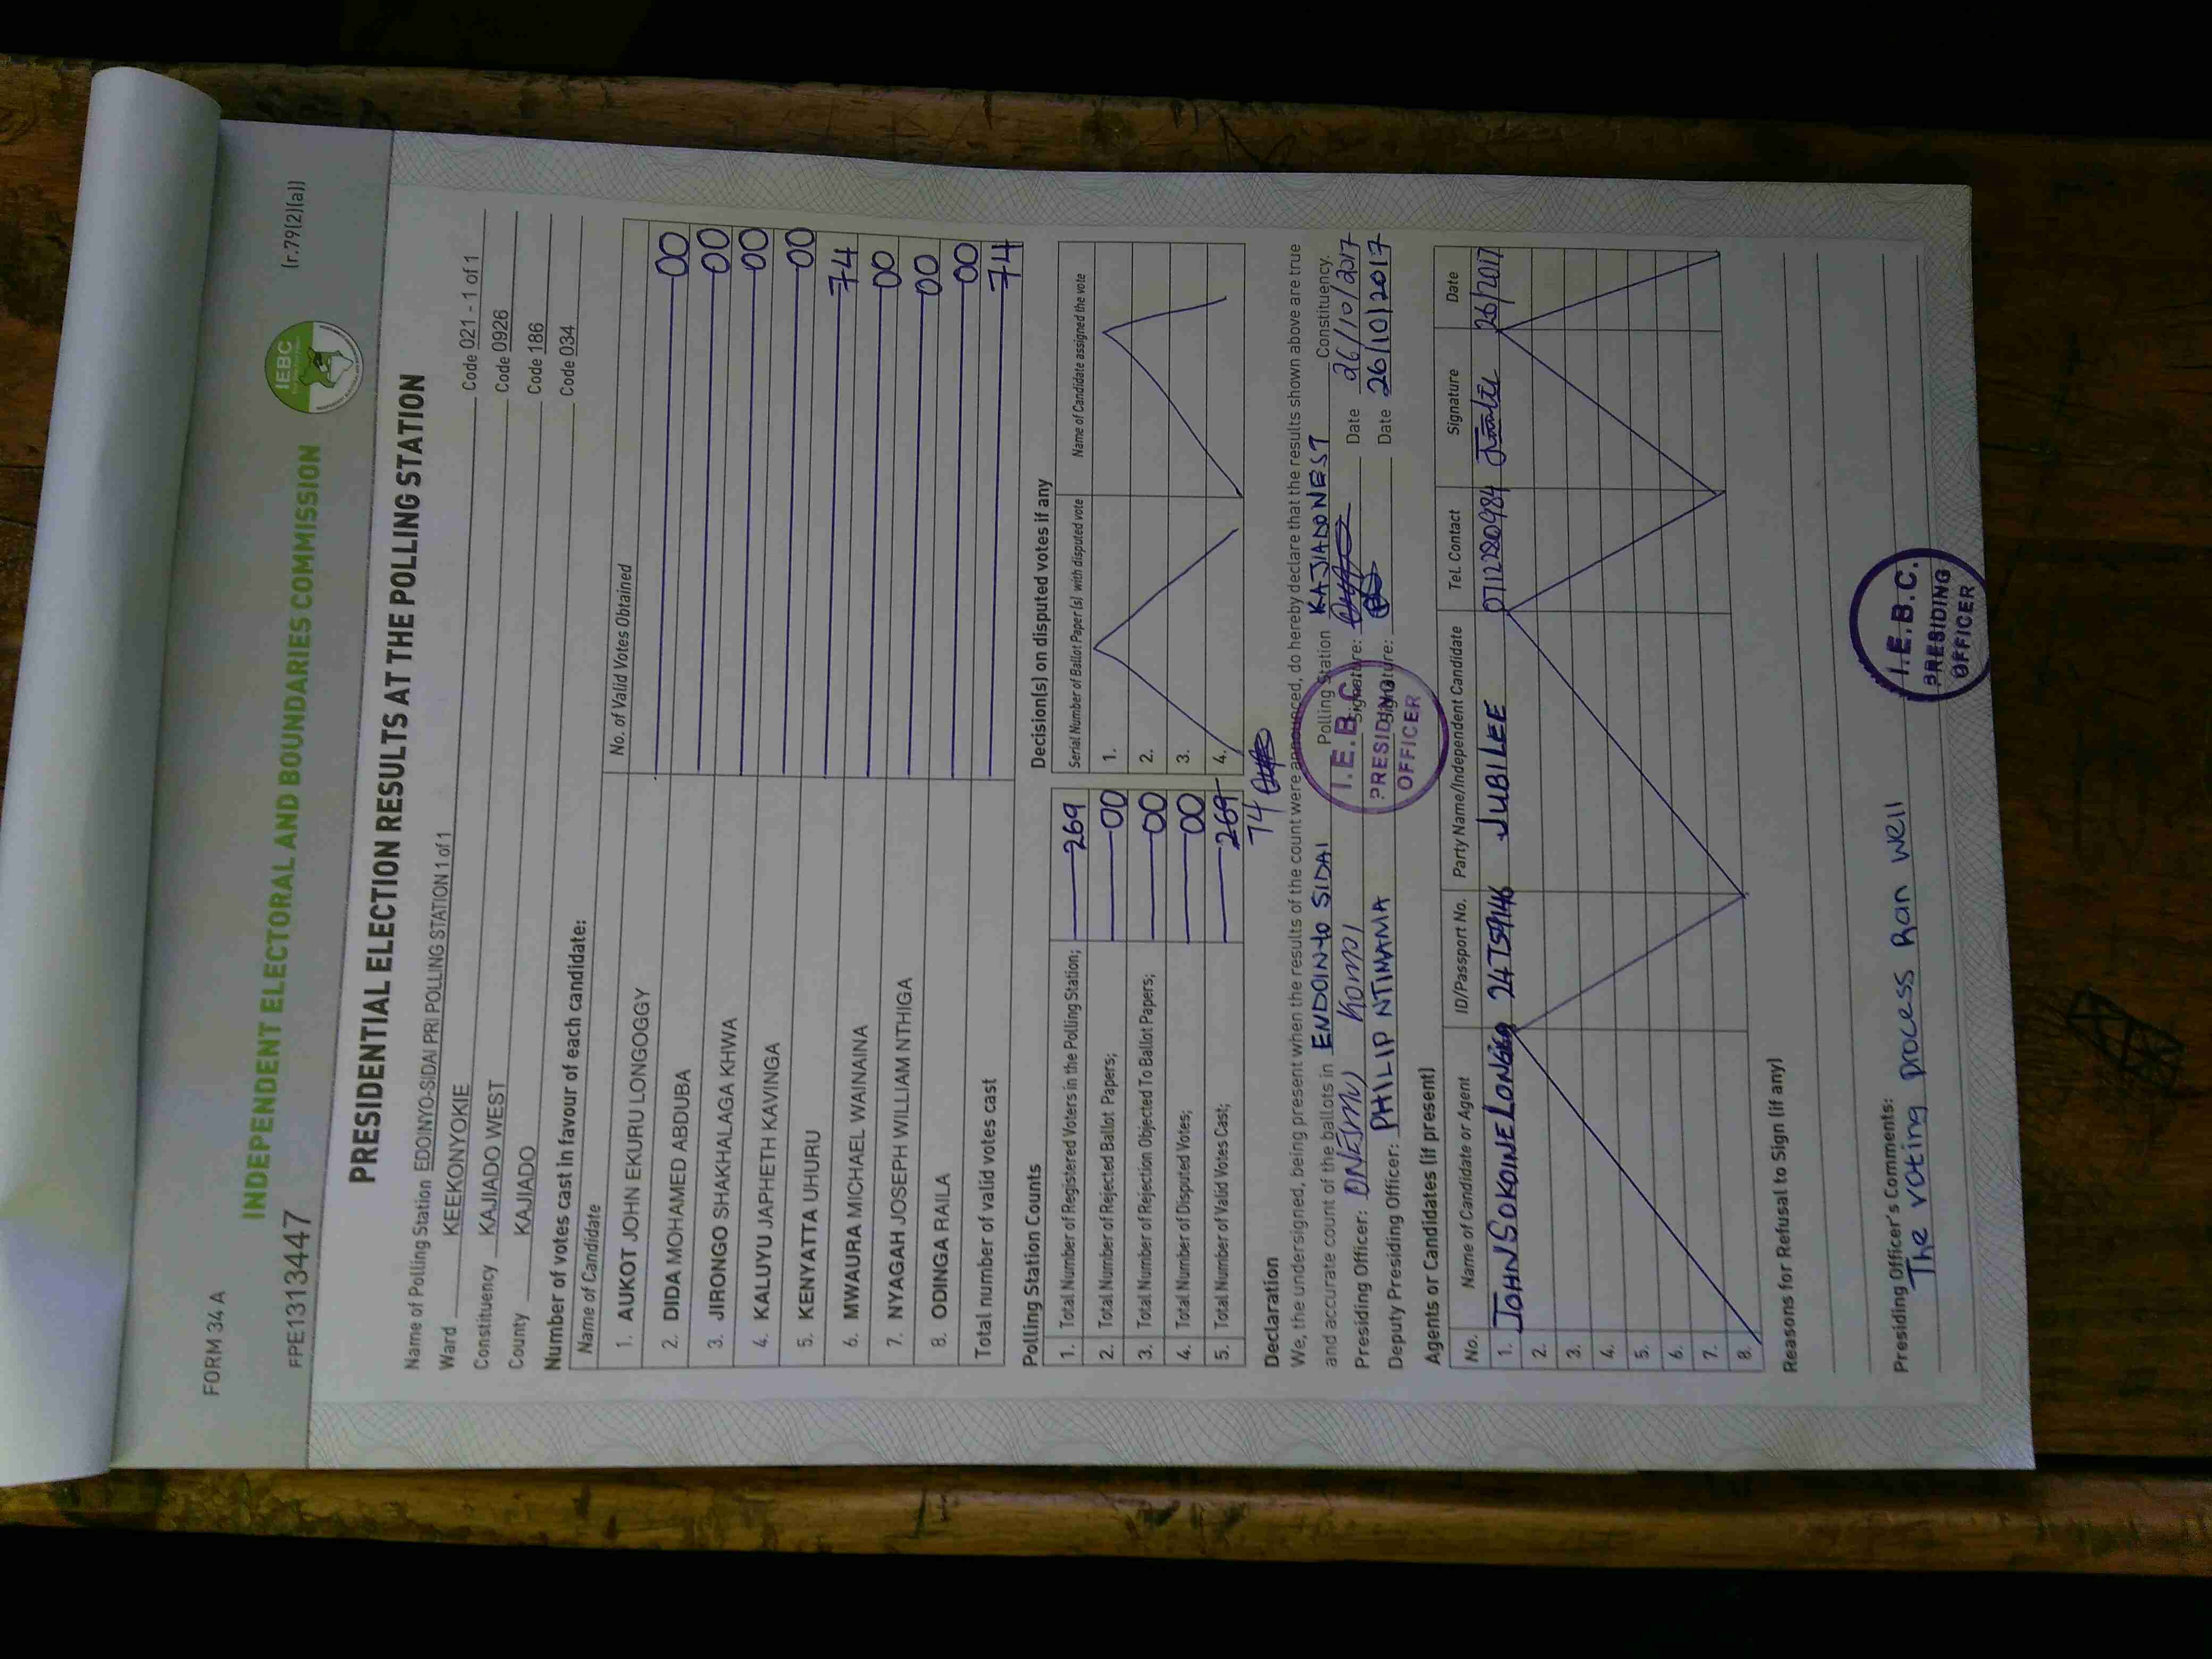 FORM 34 A
INDEPENDENT ELECTORAL AND BOUNDARIES COMMISSION
IEBC
(r.79(2)(a))
FPE1313447
PRESIDENTIAL ELECTION RESULTS AT THE POLLING STATION
Name of Polling Station EDOINYO-SIDAI PRI POLLING STATION 1 of 1 Code 021 - 1 of 1
Ward KEEKONYOKIE Code 0926
Constituency KAJIADO WEST Code 186
County KAJIADO Code 034
Number of votes cast in favour of each candidate:
Name of Candidate No. of Valid Votes Obtained
1. AUKOT JOHN EKURU LONGOGGY 00
2. DIDA MOHAMED ABDUBA 00
3. JIRONGO SHAKHALAGA KHWA 00
4. KALUYU JAPHETH KAVINGA 00
5. KENYATTA UHURU 74
6. MWAURA MICHAEL WAINAINA 00
7. NYAGAH JOSEPH WILLIAM NTHIGA 00
8. ODINGA RAILA 00
Total number of valid votes cast 74
Polling Station Counts
1. Total Number of Registered Voters in the Polling Station; 269
2. Total Number of Rejected Ballot Papers; 00
3. Total Number of Rejection Objected To Ballot Papers; 00
4. Total Number of Disputed Votes; 00
5. Total Number of Valid Votes Cast; 269
74
Decision(s) on disputed votes if any
Serial Number of Ballot Paper(s) with disputed vote Name of Candidate assigned the vote
1.
2.
3.
4.
Declaration
We, the undersigned, being present when the results of the count were announced, do hereby declare that the results shown above are true
and accurate count of the ballots in ENDOINto SIDAI Polling Station KAJIADO WEST Constituency.
Presiding Officer: ONESMU KOMPI Signature: Date 26/10/2017
Deputy Presiding Officer: PHILIP NTIMAMA Signature: Date 26/10/2017
I.E.B.C
PRESIDING
OFFICER
Agents or Candidates (if present)
No. Name of Candidate or Agent ID/Passport No. Party Name/Independent Candidate Tel. Contact Signature Date
1. JOHN SOKOINE JUBILEE 0712280984
2.
3.
4.
5.
6.
7.
8.
Reasons for Refusal to Sign (if any)
Presiding Officer's Comments:
The voting process Ran well
I.E.B.C.
PRESIDING
OFFICER